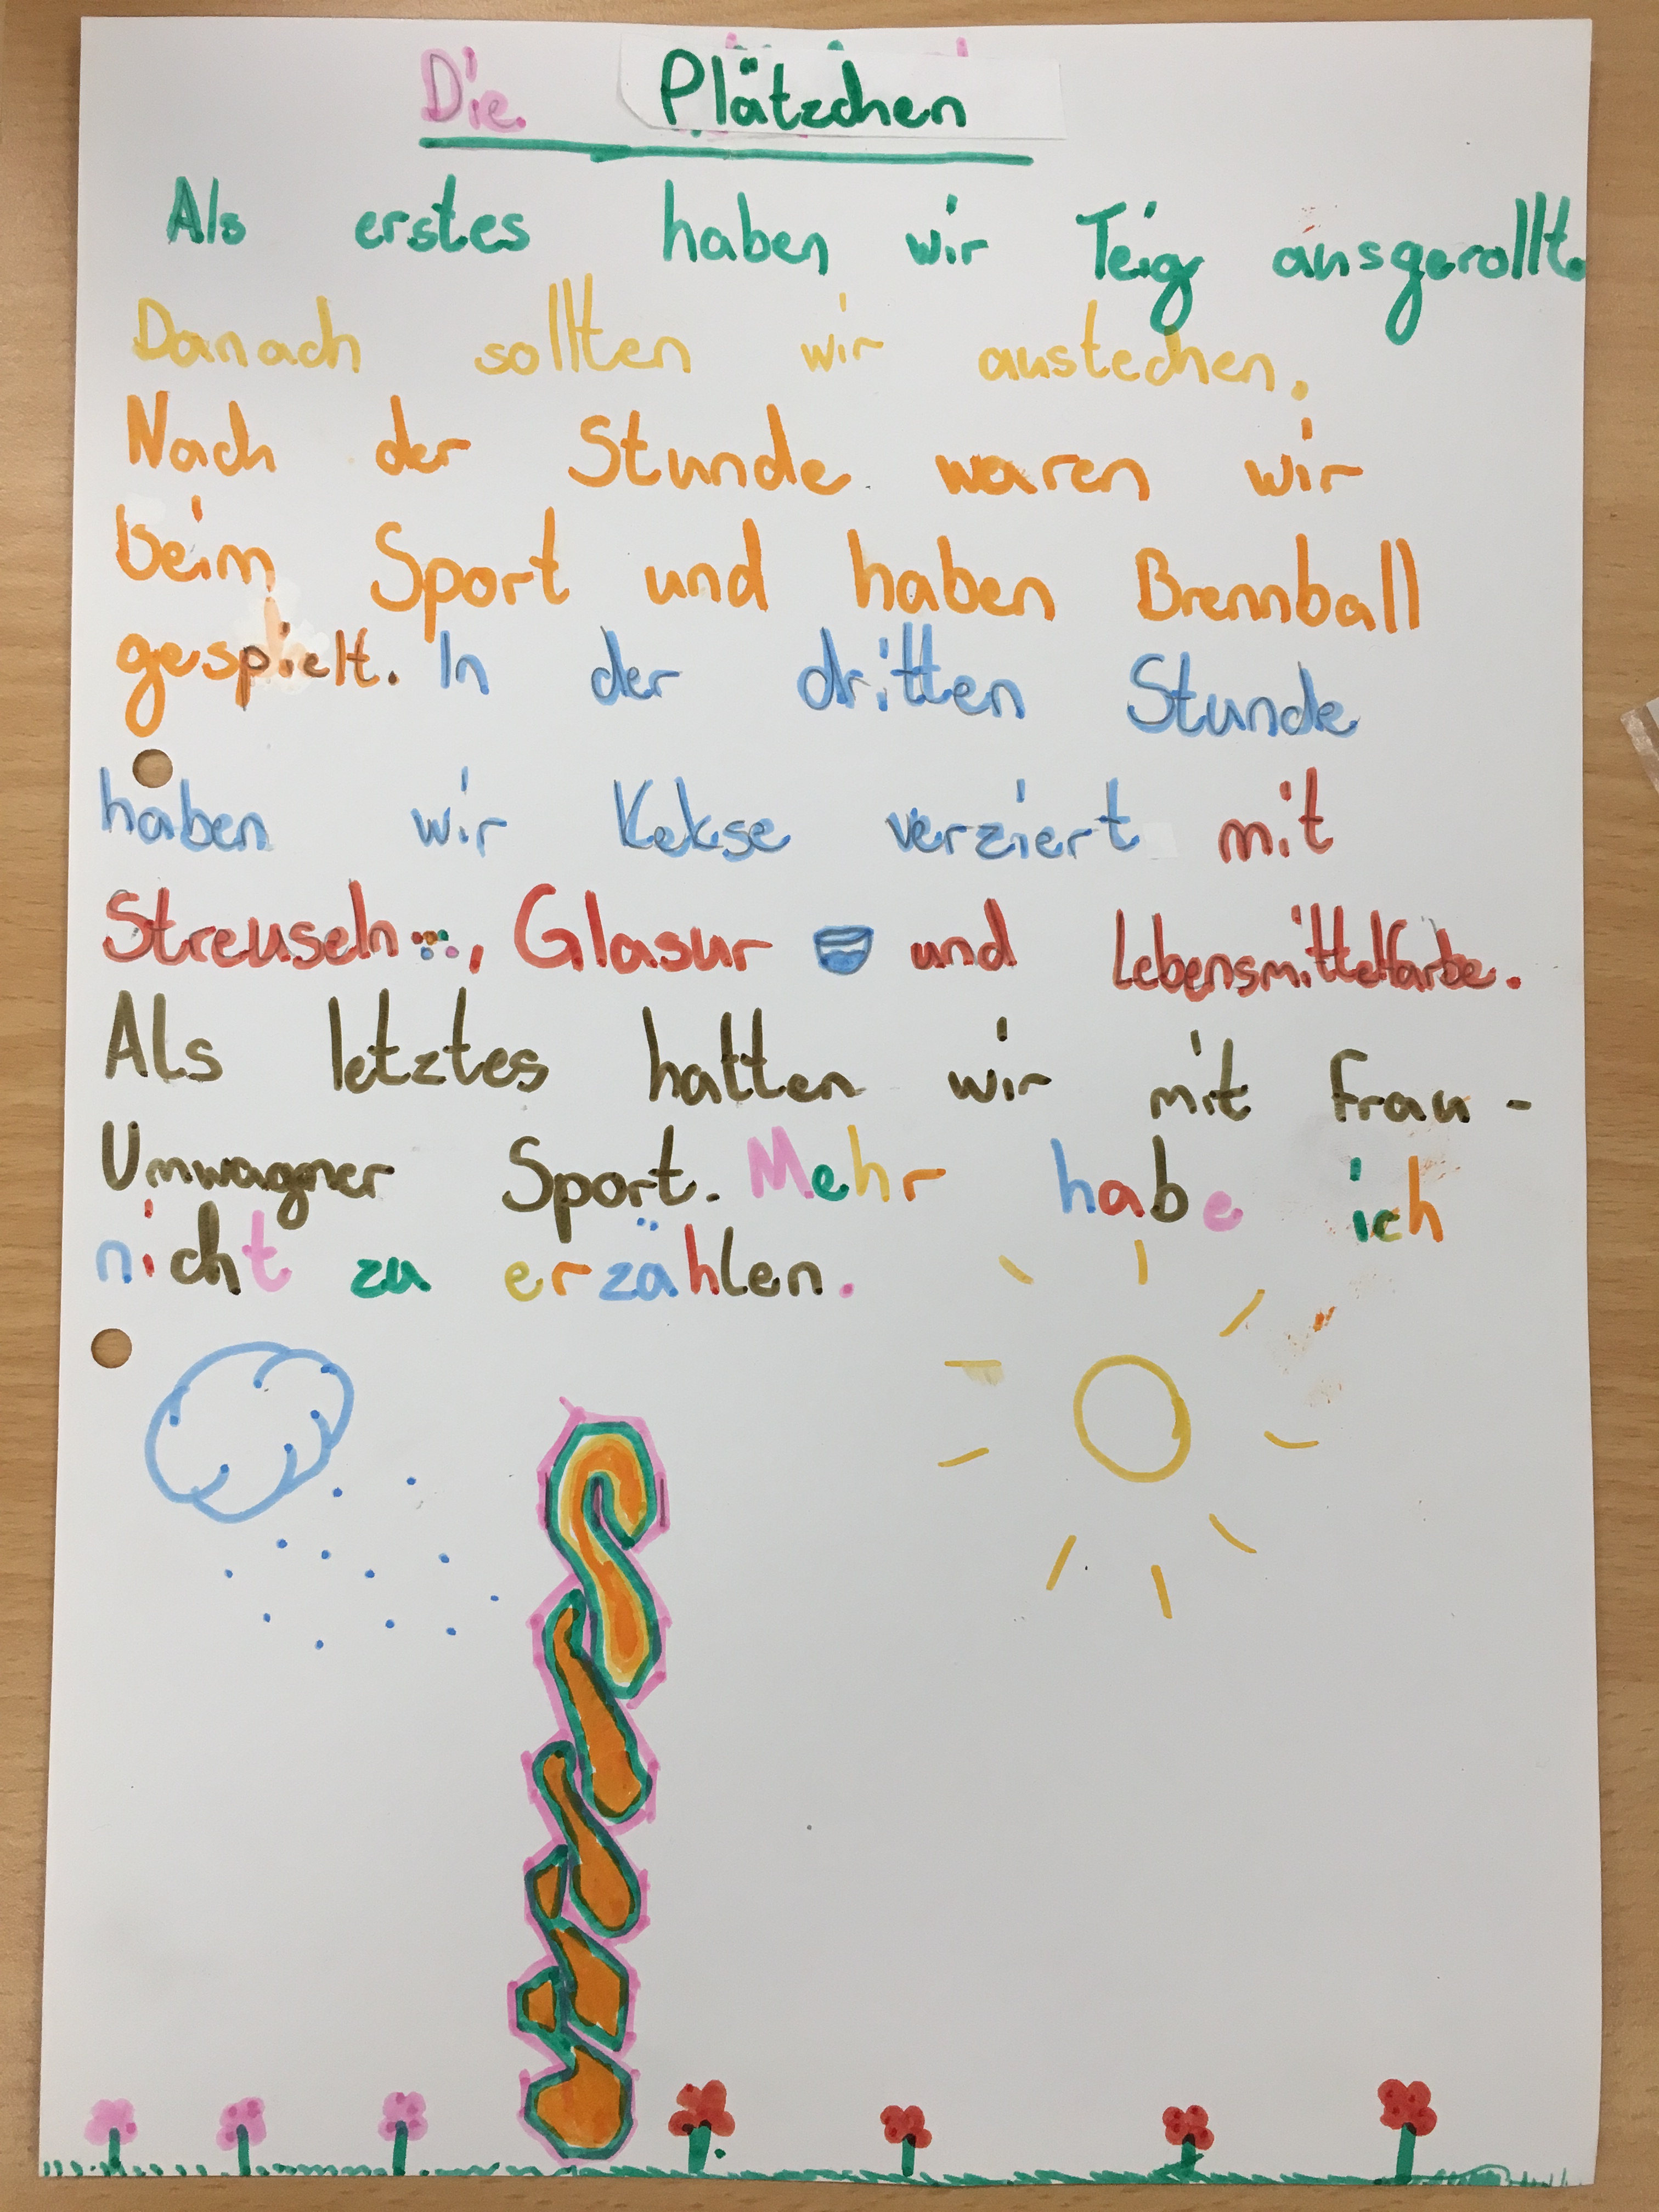 Die Plätzchen
Als erstes haben wir Teig ausgerollt.
Danach sollten wir austechen.
Nach der Stunde waren wir
beim Sport und haben Brennball
gespielt. In der dritten Stunde
haben wir Kekse verziert mit
Streuseln, Glasur und Lebensmittelfarbe.
Als letztes hatten wir mit Frau-
Umwagner Sport. Mehr habe ich
nicht zu erzählen.